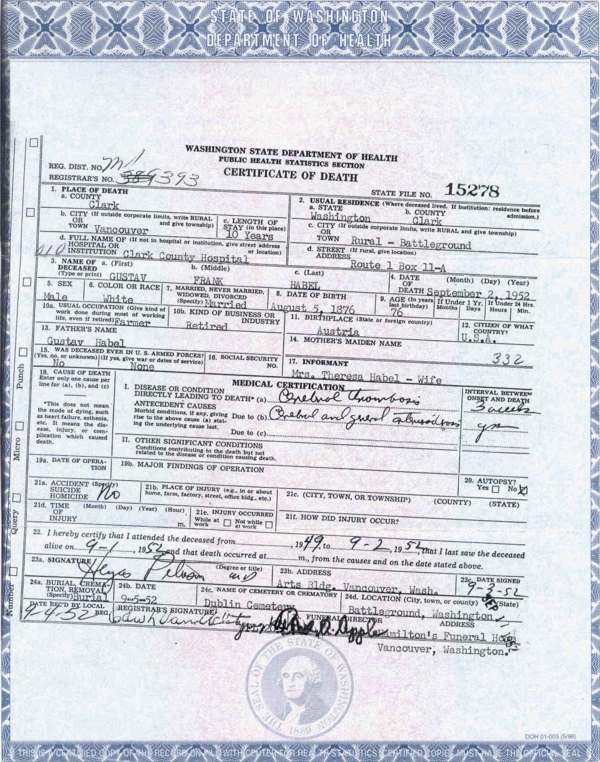 STATE OF WASHINGTON
DEPARTMENT OF HEALTH
WASHINGTON STATE DEPARTMENT OF HEALTH
PUBLIC HEALTH STATISTICS SECTION
CERTIFICATE OF DEATH
REG. DIST. NO.
REGISTRAR'S NO. 393
STATE FILE NO. 15278
1. PLACE OF DEATH
a. COUNTY
Clark
2. USUAL RESIDENCE (Where deceased lived. If institution: residence before admission.)
a. STATE b. COUNTY
Washington Clark
b. CITY (If outside corporate limits, write RURAL and give township)
OR
TOWN Vancouver
c. LENGTH OF STAY (in this place)
10 Years
c. CITY (If outside corporate limits, write RURAL and give township)
OR
TOWN Rural - Battleground
d. FULL NAME OF (If not in hospital or institution, give street address or location)
HOSPITAL OR
INSTITUTION Clark County Hospital
d. STREET (If rural, give location)
ADDRESS
Route 1 Box 11-A
3. NAME OF DECEASED (Type or print)
a. (First) b. (Middle) c. (Last)
GUSTAV FRANK HABEL
4. DATE OF DEATH (Month) (Day) (Year)
September 2, 1952
5. SEX
Male
6. COLOR OR RACE
White
7. MARRIED, NEVER MARRIED, WIDOWED, DIVORCED (Specify)
Married
8. DATE OF BIRTH
August 5, 1876
9. AGE (In years last birthday)
76
If Under 1 Yr. If Under 24 Hrs.
Months Days Hours Min.
10a. USUAL OCCUPATION (Give kind of work done during most of working life, even if retired)
Farmer
10b. KIND OF BUSINESS OR INDUSTRY
Retired
11. BIRTHPLACE (State or foreign country)
Austria
12. CITIZEN OF WHAT COUNTRY?
U.S.A.
13. FATHER'S NAME
Gustav Habel
14. MOTHER'S MAIDEN NAME
15. WAS DECEASED EVER IN U.S. ARMED FORCES?
(Yes, no, or unknown) (If yes, give war or dates of service)
No None
16. SOCIAL SECURITY NO.
17. INFORMANT
332
Mrs. Theresa Habel - Wife
18. CAUSE OF DEATH
Enter only one cause per line for (a), (b), and (c)
MEDICAL CERTIFICATION
INTERVAL BETWEEN ONSET AND DEATH
I. DISEASE OR CONDITION
DIRECTLY LEADING TO DEATH* (a) Cerebral thrombosis
3 weeks
*This does not mean the mode of dying, such as heart failure, asthenia, etc. It means the disease, injury, or complication which caused death.
ANTECEDENT CAUSES
Morbid conditions, if any, giving rise to the above cause (a) stating the underlying cause last.
Due to (b) Cerebral and general
yrs
Due to (c)
II. OTHER SIGNIFICANT CONDITIONS
Conditions contributing to the death but not related to the disease or condition causing death.
19a. DATE OF OPERATION
19b. MAJOR FINDINGS OF OPERATION
20. AUTOPSY?
Yes No
21a. ACCIDENT (Specify)
SUICIDE
HOMICIDE
No
21b. PLACE OF INJURY (e.g., in or about home, farm, factory, street, office bldg., etc.)
21c. (CITY, TOWN, OR TOWNSHIP) (COUNTY) (STATE)
21d. TIME OF INJURY (Month) (Day) (Year) (Hour)
m.
21e. INJURY OCCURRED
While at work Not while at work
21f. HOW DID INJURY OCCUR?
22. I hereby certify that I attended the deceased from , 1949, to 9-2, 1952 that I last saw the deceased
alive on 9-1, 1952 and that death occurred at m., from the causes and on the date stated above.
23a. SIGNATURE (Degree or title)
23b. ADDRESS
Arts Bldg. Vancouver, Wash.
23c. DATE SIGNED
9-3-52
24a. BURIAL, CREMATION, REMOVAL (Specify)
Burial
24b. DATE
9-5-52
24c. NAME OF CEMETERY OR CREMATORY
Dublin Cemetery
24d. LOCATION (City, town, or county) (State)
Battleground, Washington
DATE REC'D BY LOCAL REG
9-4-52
REGISTRAR'S SIGNATURE
FUNERAL DIRECTOR ADDRESS
Hamilton's Funeral Home
Vancouver, Washington.
Punch
Micro
Query
Number
THE SEAL OF THE STATE OF WASHINGTON
1889
DOH 01-003 (5/98)